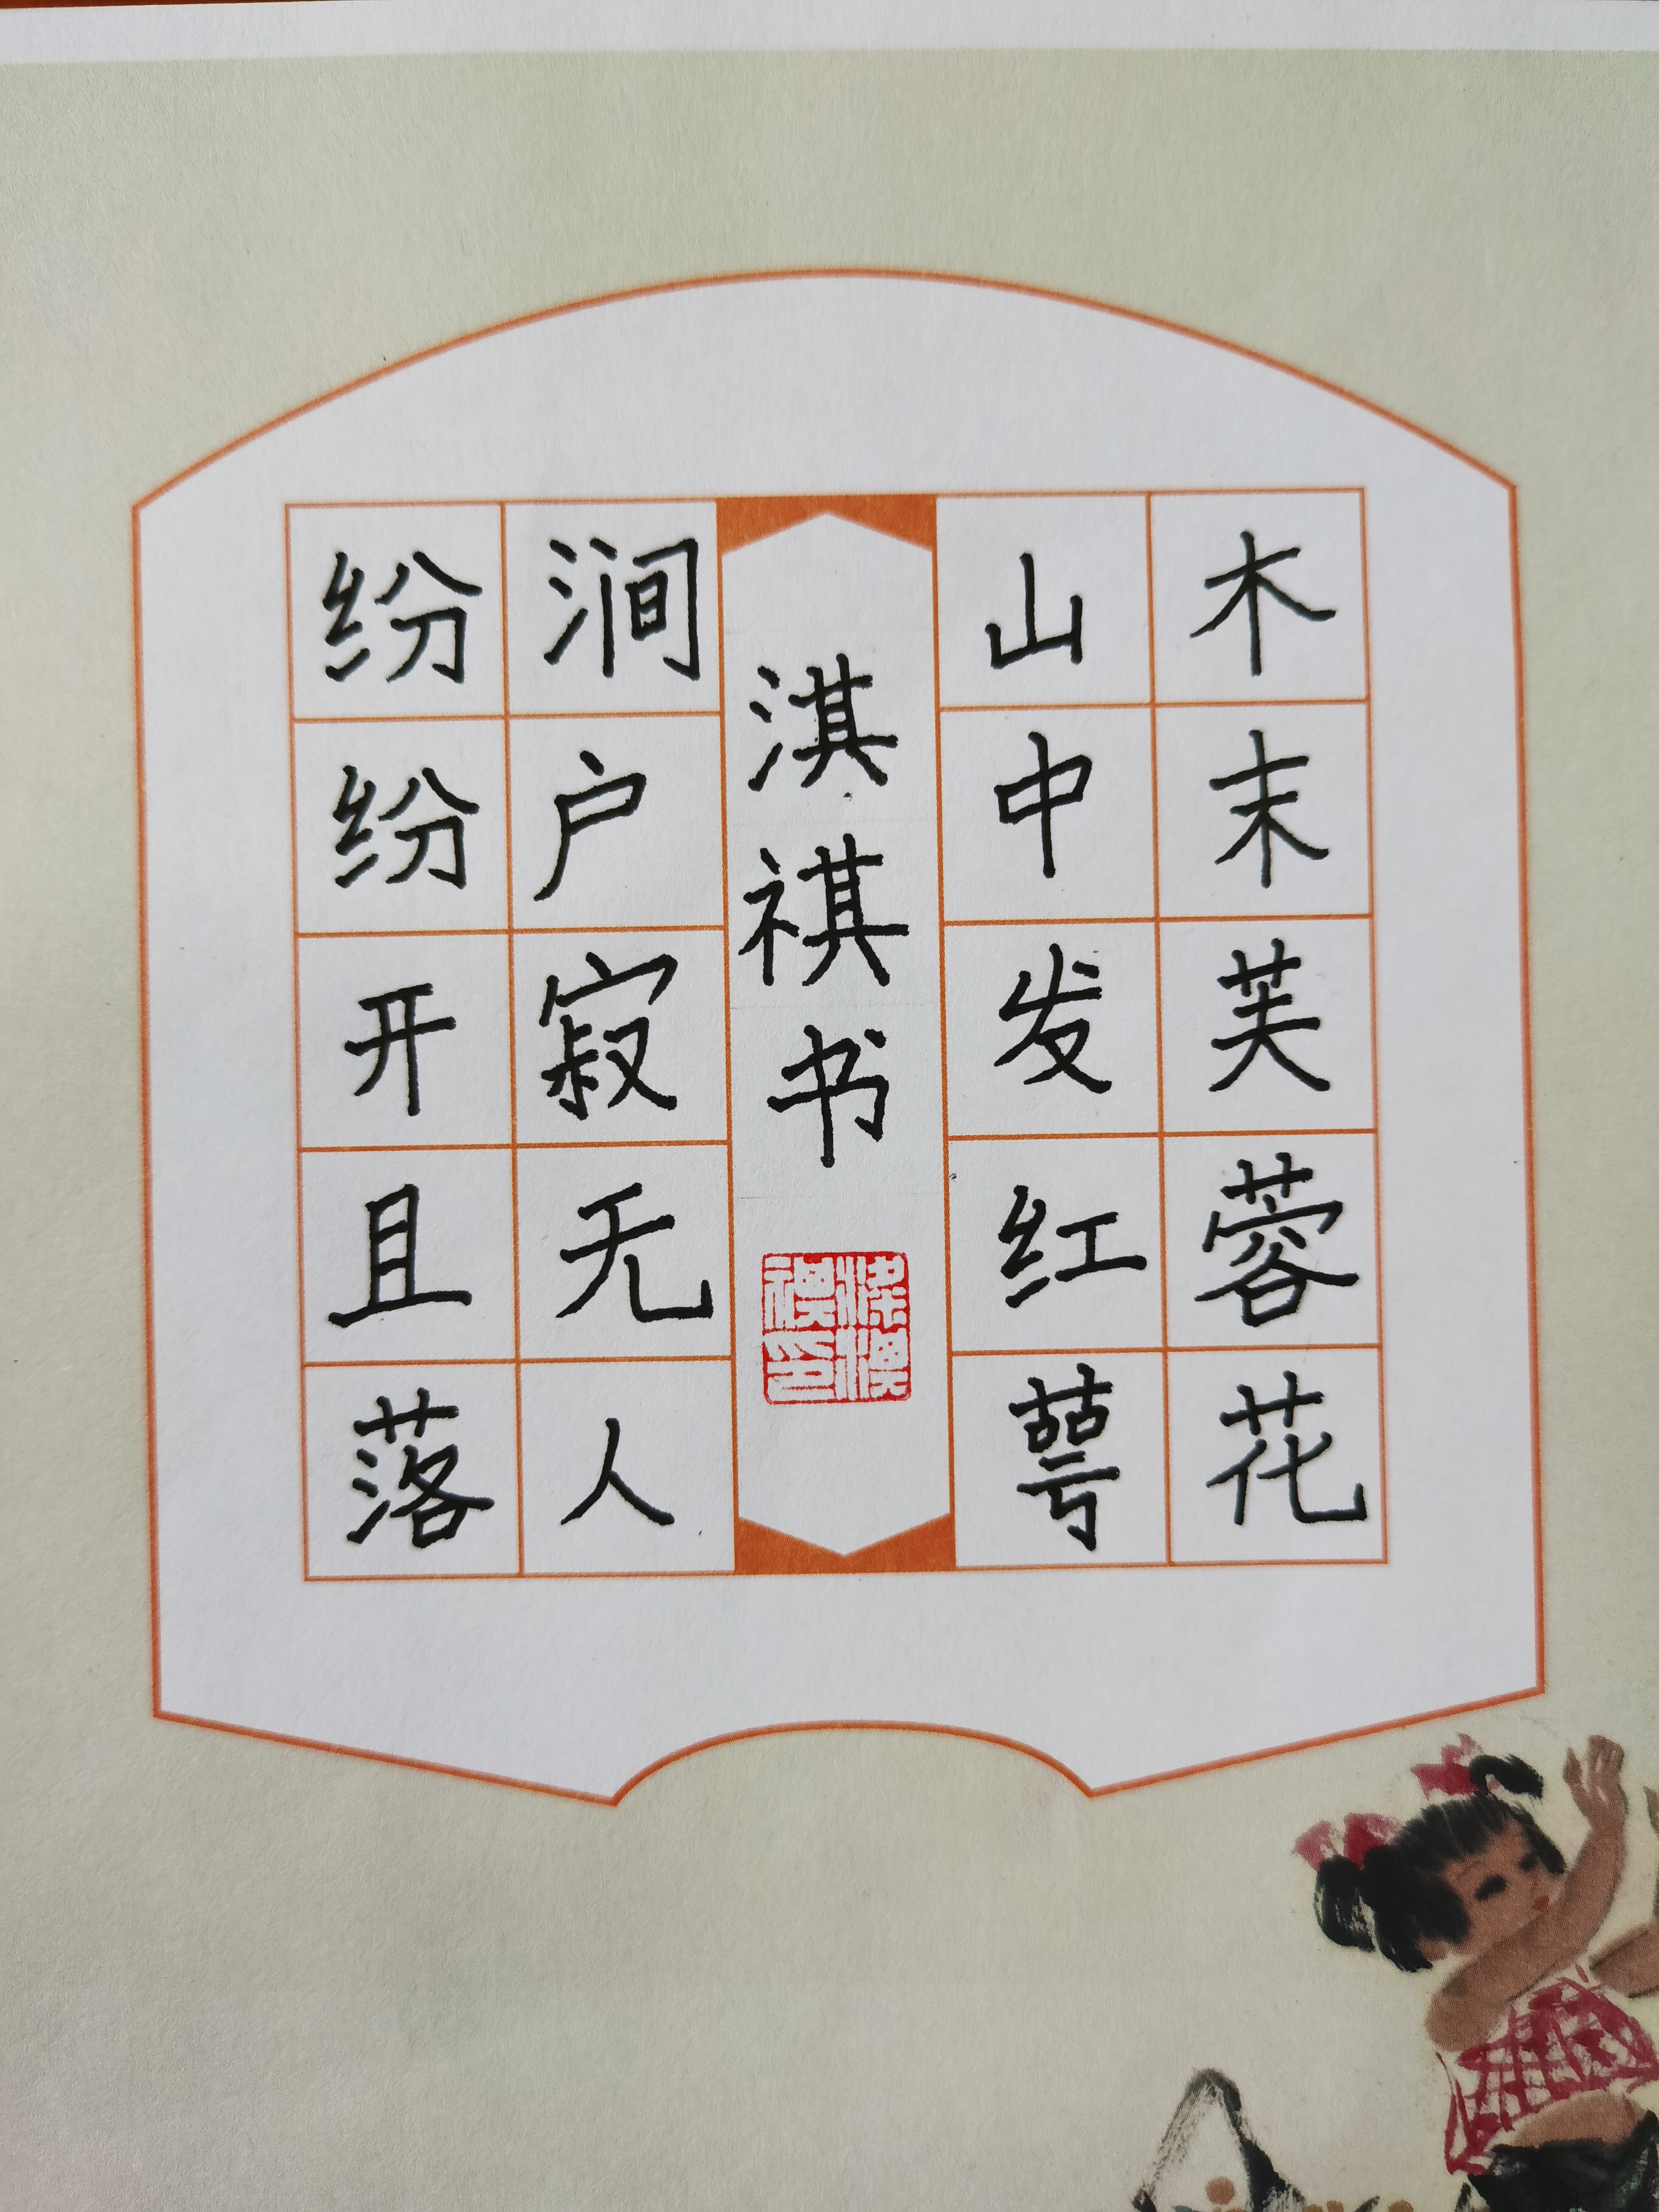 木末芙蓉花
山中发红萼
淇祺书
涧户寂无人
纷纷开且落